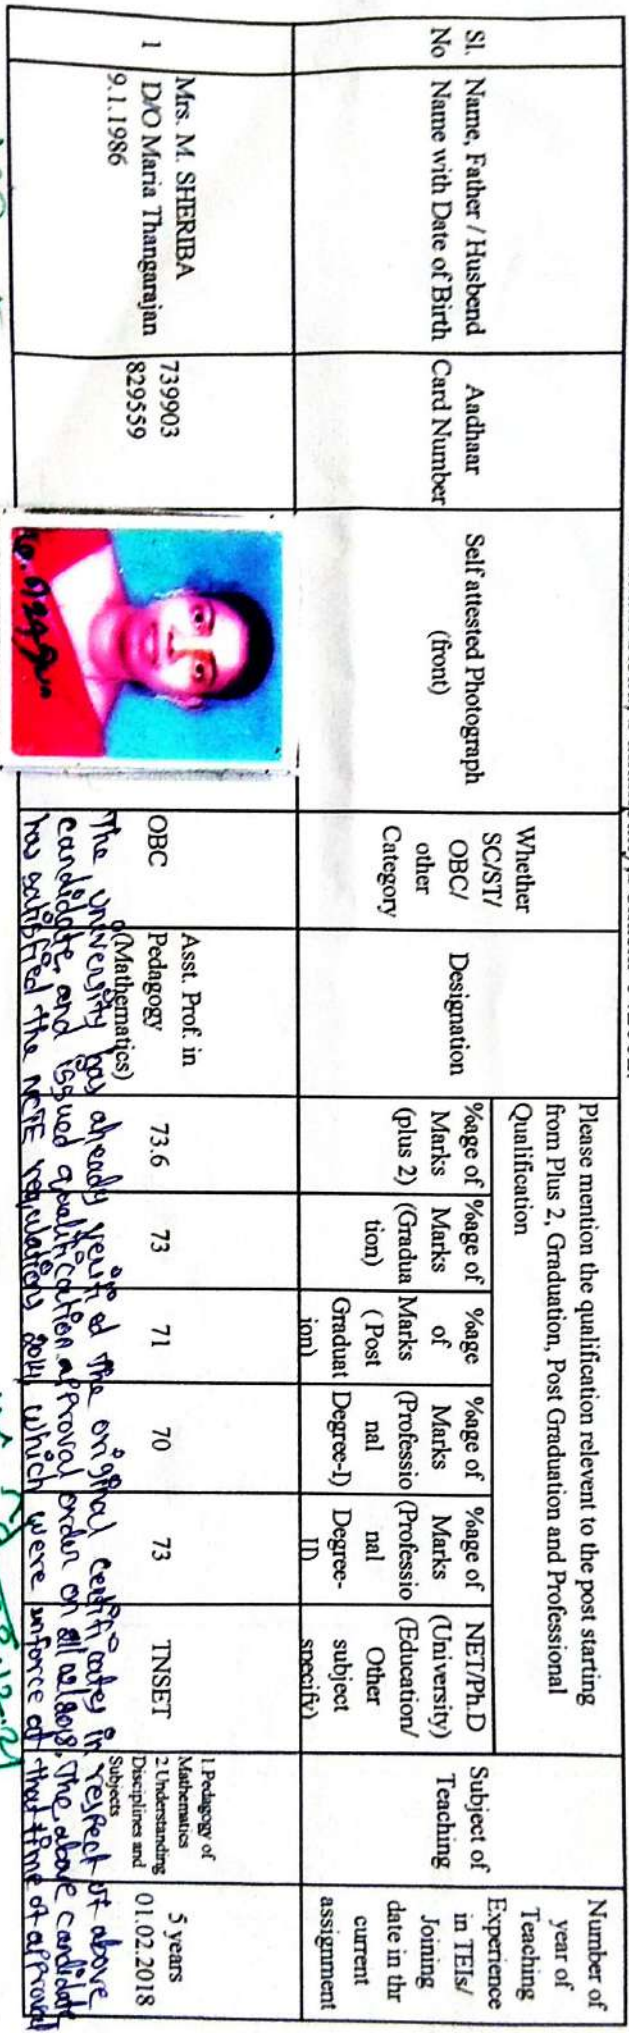 Sl.
No
Name, Father / Husbend
Name with Date of Birth
Aadhaar
Card Number
Self attested Photograph
(front)
Whether
SC/ST/
OBC/
other
Category
Designation
Please mention the qualification relevent to the post starting
from Plus 2, Graduation, Post Graduation and Professional
Qualification
%age of
Marks
(plus 2)
%age of
Marks
(Gradua
tion)
%age
of
Marks
( Post
Graduat
ion)
%age of
Marks
(Professio
nal
Degree-I)
%age of
Marks
(Professio
nal
Degree-
II)
NET/Ph.D
(University)
(Education/
Other
subject
specify)
Subject of
Teaching
Number of
year of
Teaching
Experience
in TEIs/
Joining
date in thr
current
assignment
1
Mrs. M. SHERIBA
D/O Maria Thangarajan
9.1.1986
739903
829559
OBC
Asst. Prof. in
Pedagogy
(Mathematics)
73.6
73
71
70
73
TNSET
1.Pedagogy of
Mathematics
2 Understanding
Disciplines and
Subjects
5 years
01.02.2018
The university has already verified the original certificates in respect of above
candidate and issued qualification approval order on 02/2018. The above candidate
has satisfied the NCTE regulations 2014 which were inforce at that time of approval